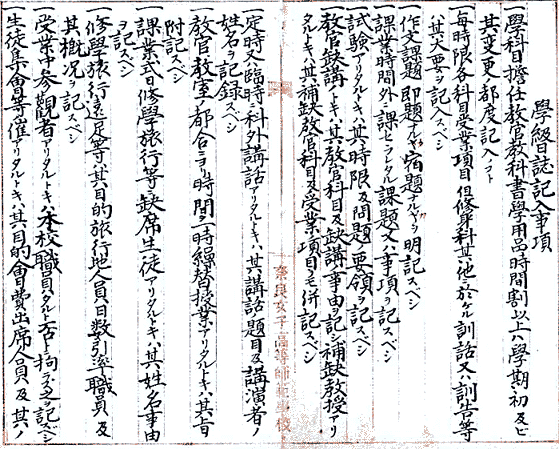 學習日誌記入事項
一學科目擔任教官教科書學用品時間割以上ハ學期初及ビ
其変更ノ都度記入ノコト
一每時限各科目受業項目但修身科其ノ他ニ於ケル訓話又ハ訓告等
其大要ヲ記入スベシ
一作文課題ハ即題ナルヤ宿題ナルヤヲ明記スベシ
一課業時間外ニ課セラレタル課題又ハ事項ヲ記スベシ
一試驗アリタルトキハ其時限及問題ノ要領ヲ記スベシ
一教官缺講ノトキハ其教官科目及缺講ノ事由ヲ記シ補缺教授アリ
タルトキハ其補缺教官科目及受業項目ヲモ併記スベシ
奈良女子高等師範學校
一定時又ハ臨時ニ科外講話アリタルトキハ其講話ノ題目及講演者ノ
姓名ヲ記録スベシ
一教官教室ノ都合ニヨリ時間ヲ一時繰替授業アリタルトキハ其旨
附記スベシ
一課業式日修學旅行等ニ缺席生徒アリタルトキハ其姓名事由
ヲ記スベシ
一修學旅行遠足等ハ其目的旅行地人員日数引率職員及
其概况ヲ記スベシ
一受業中参觀者アリタルトキハ本校職員タルト否トニ拘ラズ之ヲ記スベシ
一生徒集會等ノ催アリタルトキハ其目的會費出席人員及其ノ